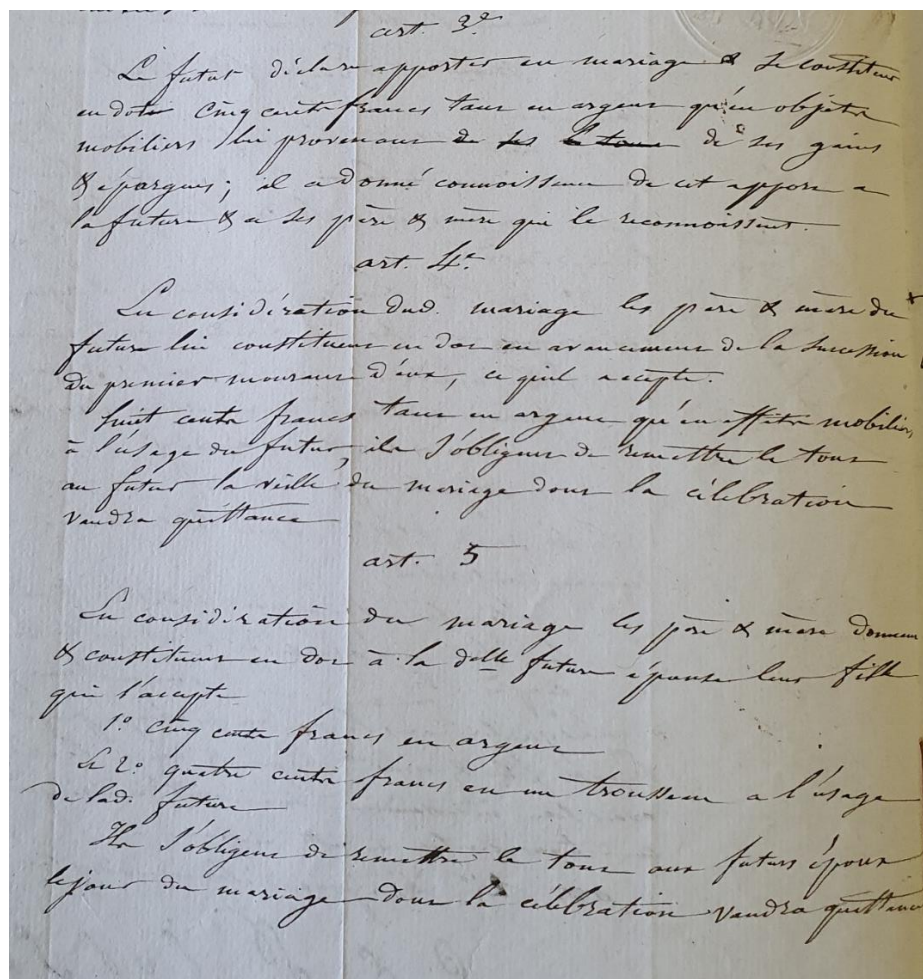 art. 3e
Le futur déclare apporter en mariage & se constituer
en dot cinq cents francs tant en argent qu'en objets
mobiliers lui provenant de ses de ses gains
& épargnes ; il a donné connoissance de cet apport a
la future & a ses père & mère qui le reconnoissent.
art. 4e
En considération dud. mariage les père & mère du
future lui constituent en dot en avancement de la succession
du premier mourant d'eux, ce qu'il accepte.
huit cents francs tant en argent qu'en effets mobiliers
à l'usage du futur, ils s'obligent de remettre le tout
au futur la veille du mariage dont la célébration
vaudra quittance
art. 5
En considération du mariage les père & mère donnent
& constituent en dot à la delle future épouse leur fille
qui l'accepte
1° cinq cents francs en argent
Et 2° quatre cents francs en un trousseau a l'usage
de lad. future
Ils s'obligent de remettre le tout aux futurs époux
le jour du mariage dont la célébration vaudra quittance